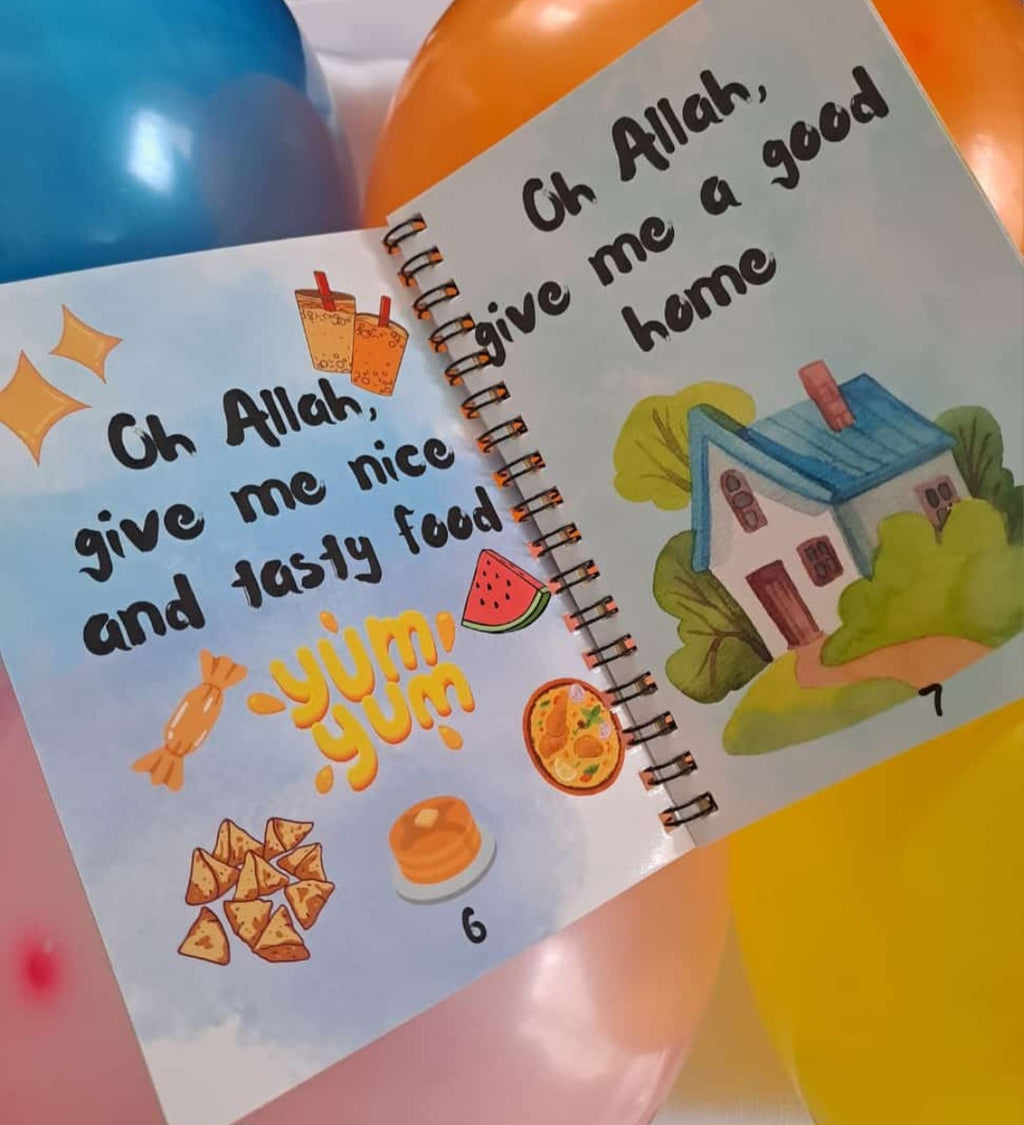 Oh Allah,
give me nice
and tasty food
yum
yum
6
Oh Allah,
give me a good
home
7